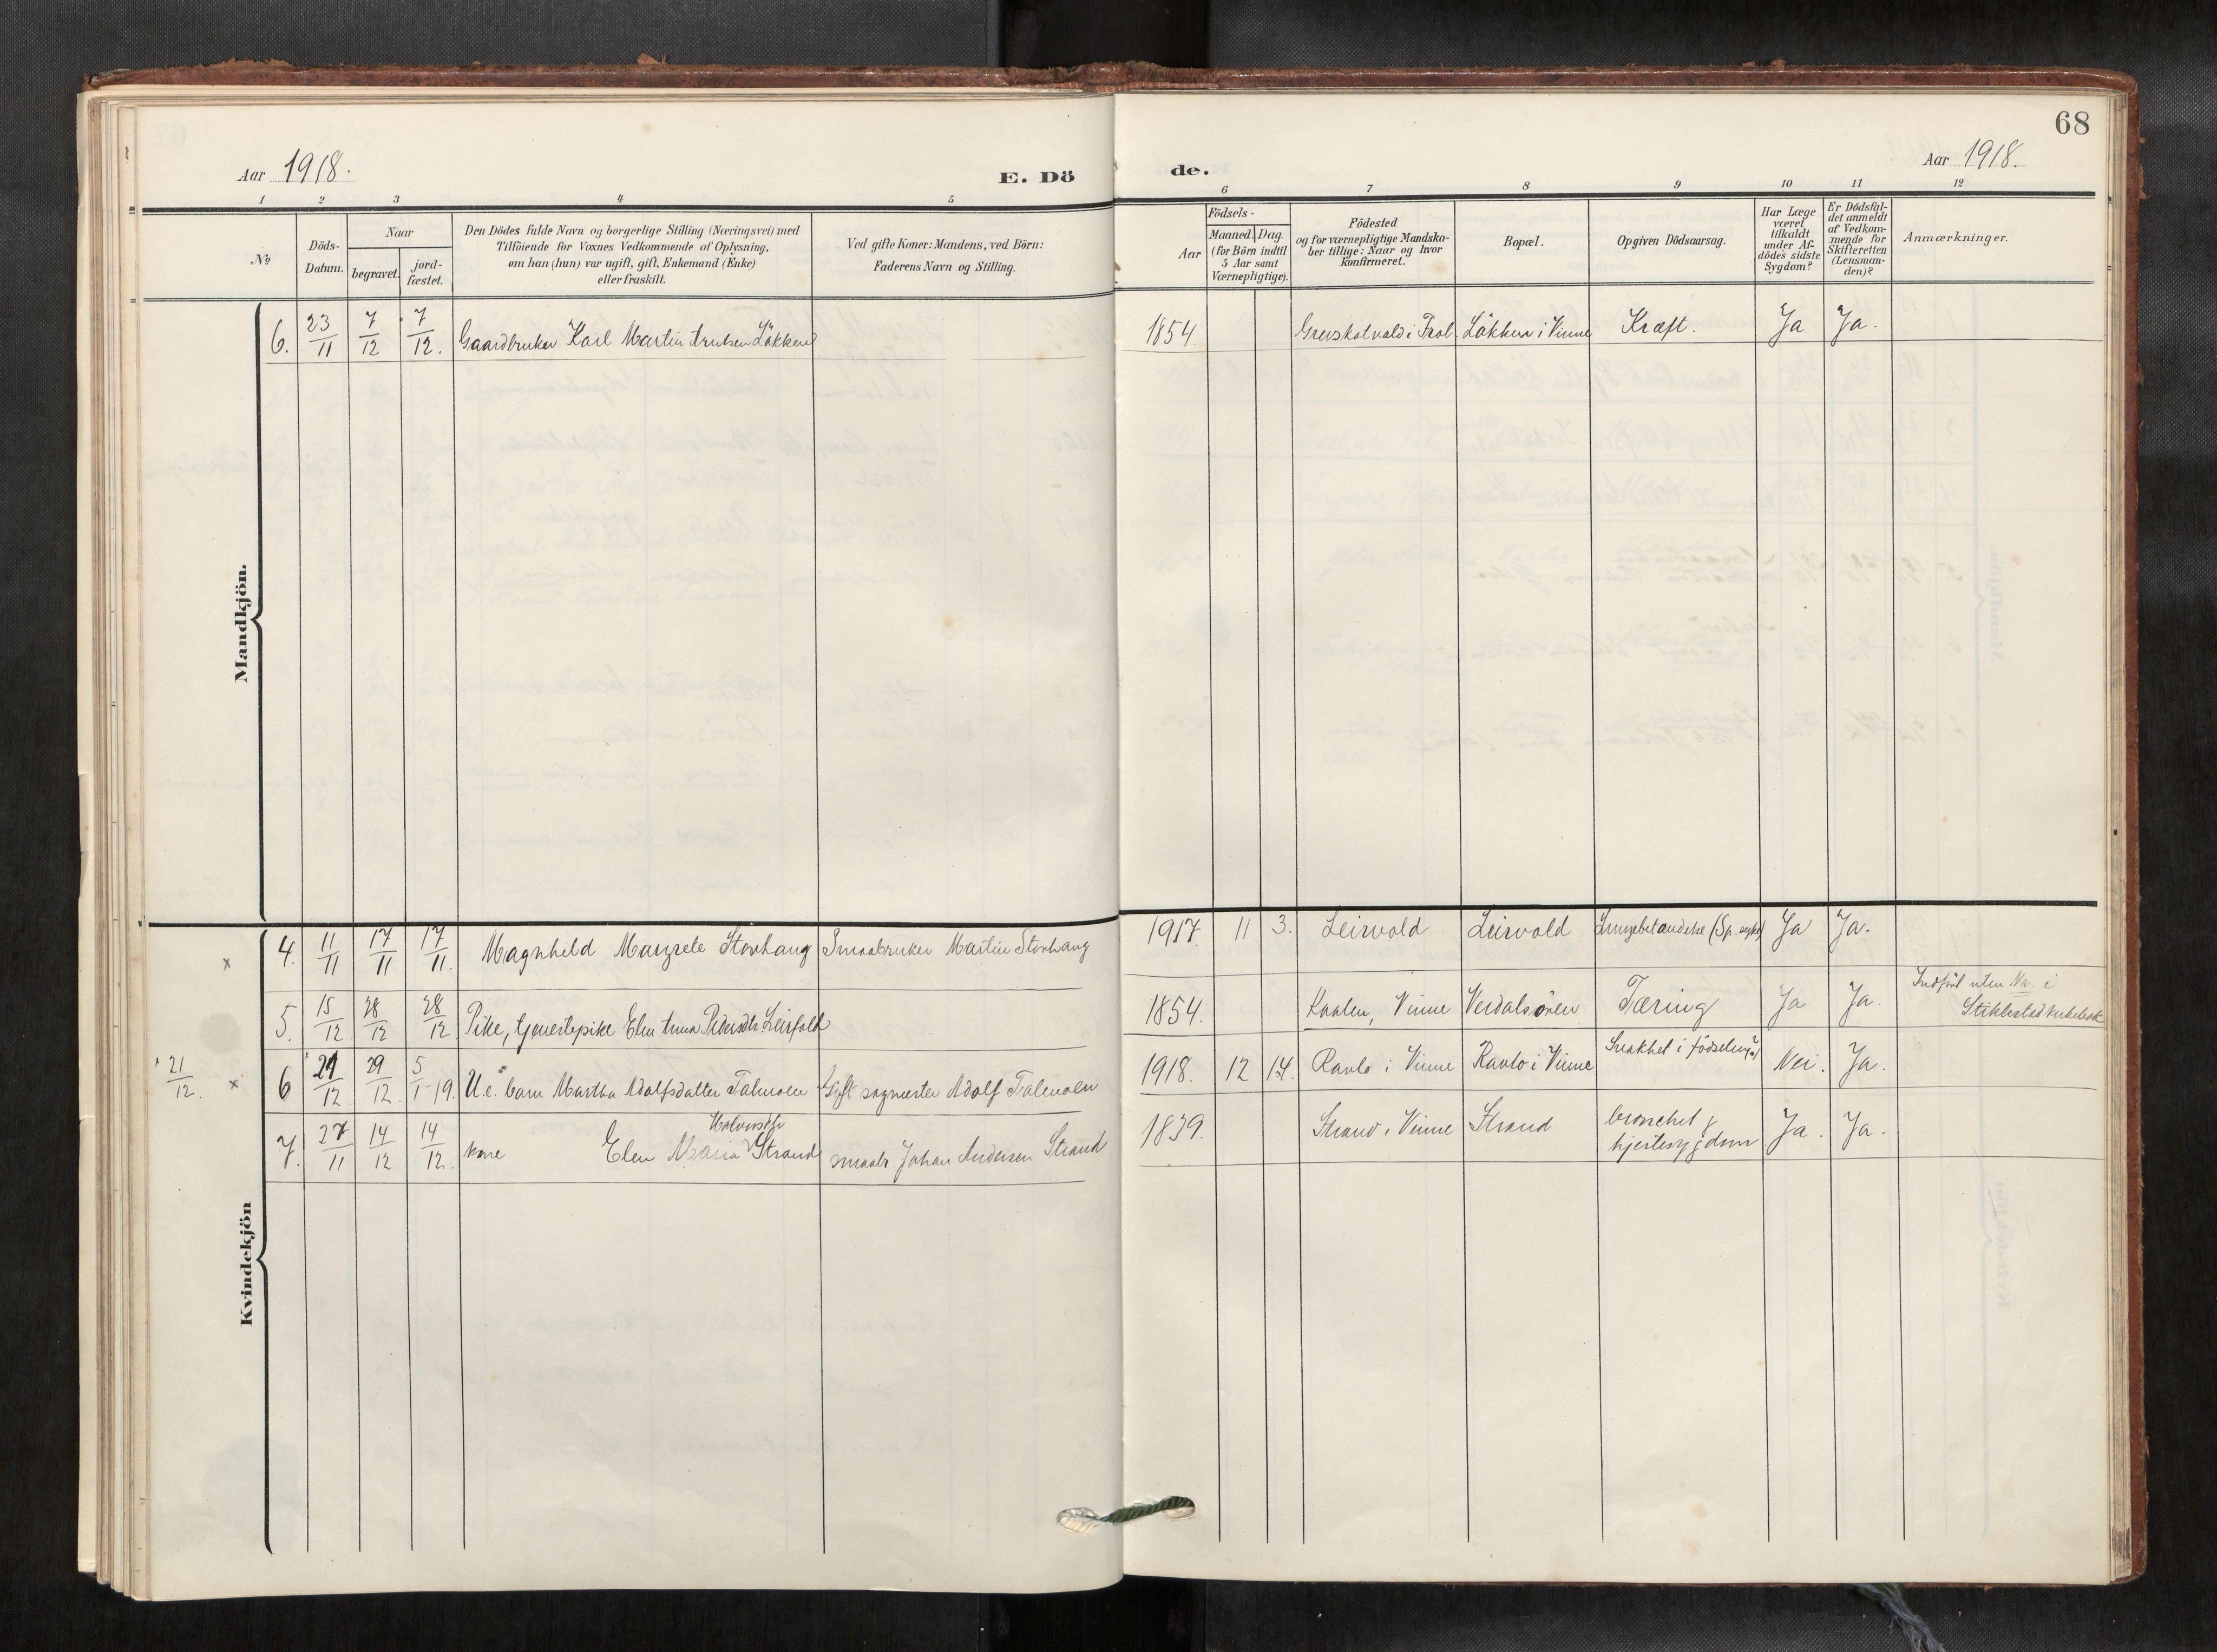 68
Aar 1918.
E. Dö
de.
Aar 1918.
1 2 3 4 5 6 7 8 9 10 11 12
No
Döds-
Datum.
Naar
begravet.
jord-
fæstet.
Den Dödes fulde Navn og borgerlige Stilling (Næringsvei) med
Tilföiende for Voxnes Vedkommende af Oplysning,
om han (hun) var ugift, gift, Enkemand (Enke)
eller fraskilt.
Ved gifte Koner: Mandens, ved Börn:
Faderens Navn og Stilling.
Födsels-
Aar
Maaned. Dag.
(for Börn indtil
5 Aar samt
Værnepligtige).
Födested
og for værnepligtige Mandska-
ber tillige: Naar og hvor
konfirmeret.
Bopæl.
Opgiven Dödsaarsag.
Har Læge
været
tilkaldt
under Af-
dödes sidste
Sygdom?
Er Dödsfal-
det anmeldt
af Vedkom-
mende for
Skifteretten
(Lensman-
den)?
Anmærkninger.
Mandkjön.
6. 23/11 7/12 7/12. Gaardbruker Karl Martin Arntsen Løkken 1854 i Frol Løkken i Vinne Kræft. Ja Ja.
Kvindekjön
x 4. 11/11 17/11 17/11. Magnhild Margrete Storhaug Smaabruker Martin Storhaug 1917. 11 3. Leirvold Leirvold Lungebetændelse (Sp. syke) Ja Ja.
5. 15/12 28/12 28/12. Pike, tjenestepike Elen Anna Pedersdtr Leirfald 1854. Kaalen, Vinne Verdalsören Tæring Ja Ja. Indført uten No. i
Stiklestad kirkebok
21/12. x 6 21/12 29/12. 5/1-19. U.e. barn Martha Adolfsdatter Talmoen Gift Adolf Talmoen 1918. 12 14. Ravlo i Vinne Ravlo i Vinne Svakhet i fødselen(?) Nei. Ja.
Halvorsdtr
7. 27/11 14/12 14/12. kone Elen Maria Strand smaabr. Johan Andersen Strand 1839. Strand i Vinne Strand bronchit &
hjertesygdom Ja. Ja.